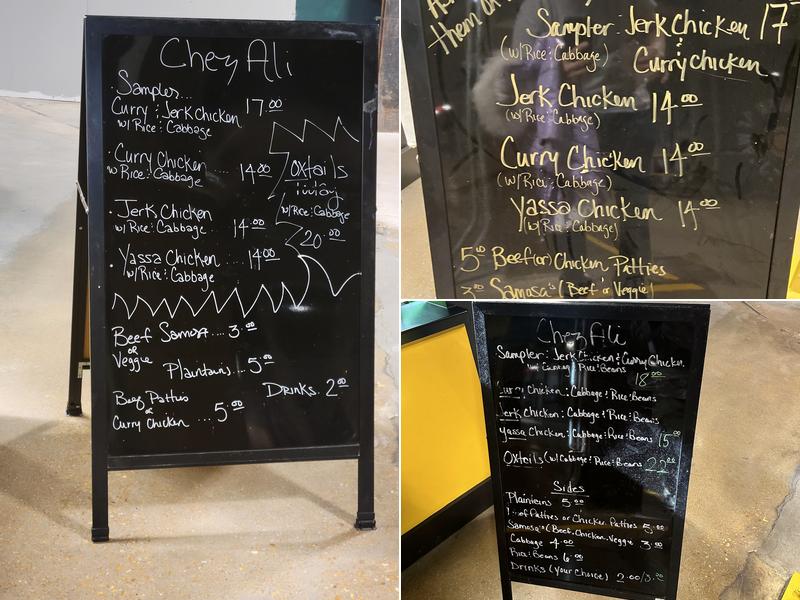 Chez Ali
Samples...
Curry & Jerk Chicken 17.00
w/ Rice & Cabbage
Curry Chicken .... 14.00
w/ Rice & Cabbage
Jerk Chicken
w/ Rice & Cabbage .. 14.00
Yassa Chicken .... 14.00
w/ Rice & Cabbage
Oxtails
Today
w/ Rice & Cabbage
20.00
Beef Samosa.... 3.00
or
Veggie
Plaintains... 5.00
Drinks. 2.00
Beef Pattis
or
Curry Chicken .... 5.00
them or
Sampler: Jerk Chicken 17
(w/ Rice & Cabbage) & Curry chicken
Jerk Chicken 14.00
(w/ Rice & Cabbage)
Curry Chicken 14.00
(w/ Rice & Cabbage)
Yassa Chicken 14.00
(w/ Rice & Cabbage)
5.00 Beef (or) Chicken Patties
3.00 Samosa's (Beef or Veggie)
Chez Ali
Sampler: Jerk Chicken & Curry Chicken,
Rice & Beans 18.00
Curry Chicken: Cabbage & Rice & Beans
Jerk Chicken: Cabbage & Rice & Beans
Yassa Chicken: Cabbage & Rice & Beans 15.00
Oxtails (w/ Cabbage & Rice & Beans 22.00
Sides
Plainteins 5.00
Patties or Chicken Patties 5.00
Samosa's (Beef, Chicken, Veggie 3.00
Cabbage 4.00
Rice & Beans 6.00
Drinks (your choice) 2.00/3.00